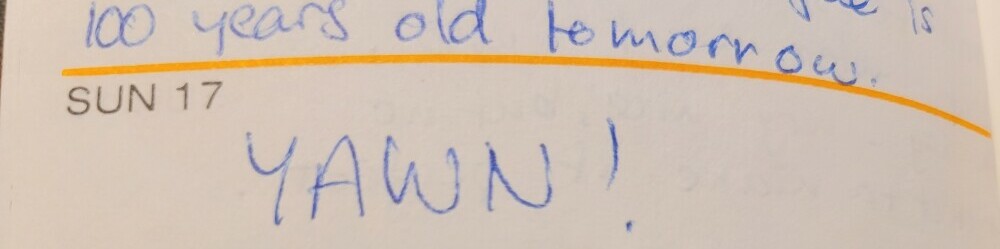 is
100 years old tomorrow.
SUN 17
YAWN!